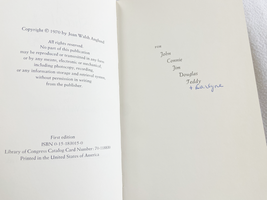 Copyright © 1976 by Joan Walsh Anglund
All rights reserved.
No part of this publication
may be reproduced or transmitted in any form
or by any means, electronic or mechanical,
including photocopy, recording,
or any information storage and retrieval system,
without permission in writing
from the publisher.
First edition
ISBN 0-15-
Library of Congress Catalog Card Number:
Printed in the United States of America
FOR
John
Connie
Joy
Douglas
Teddy
+